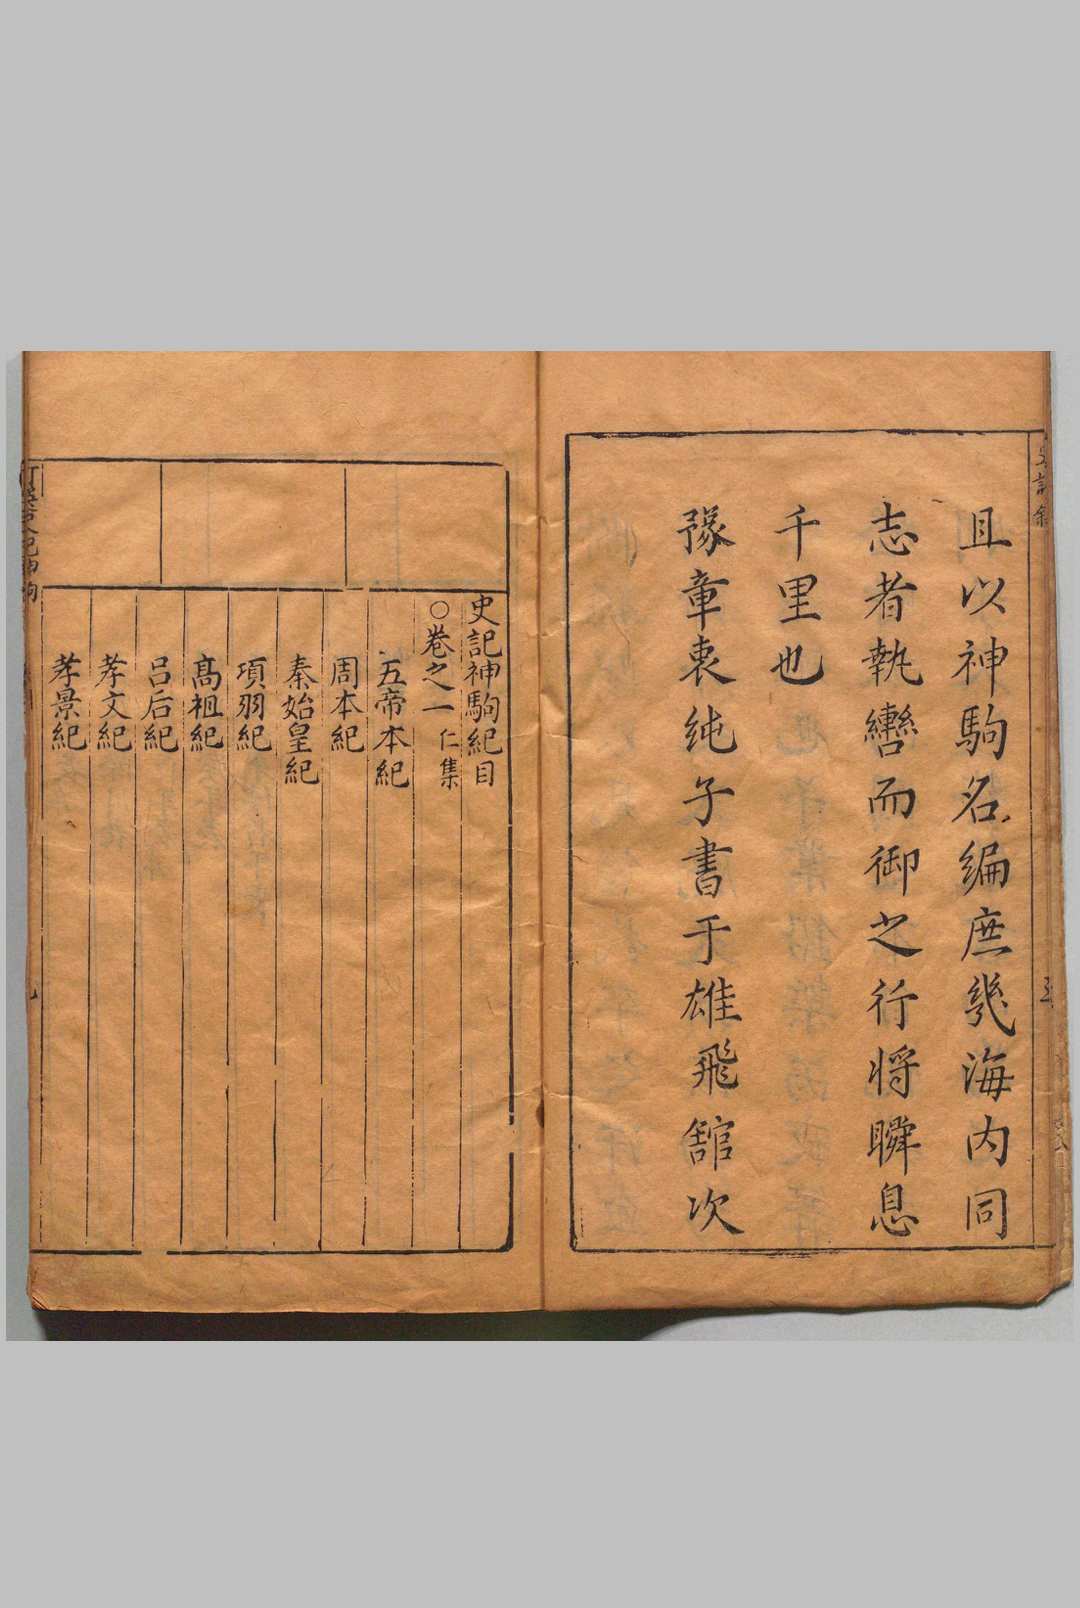 且以神駒名編庶幾海內同
志者執轡而御之行將瞬息
千里也
豫章衷純子書于雄飛舘次
史記神駒紀目
○卷之一 仁集
五帝本紀
周本紀
秦始皇紀
項羽紀
高祖紀
呂后紀
孝文紀
孝景紀